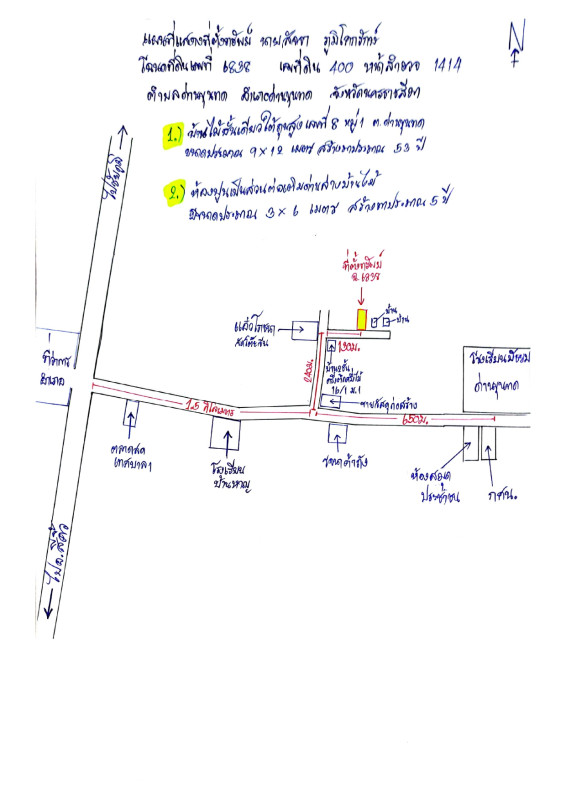 แผนที่แสดงที่ตั้งทรัพย์ นายสัญชา ภูมิโคกรักษ์
โฉนดที่ดินเลขที่ 6838 เลขที่ดิน 400 หน้าสำรวจ 1414
ตำบลด่านขุนทด อำเภอด่านขุนทด จังหวัดนครราชสีมา
N
1.) บ้านไม้ชั้นเดียวใต้ถุนสูง เลขที่ 8 หมู่ 1 ต.ด่านขุนทด
ขนาดประมาณ 9 x 12 เมตร สร้างมาประมาณ 53 ปี
2.) ห้องปูนเป็นส่วนต่อเติมด้านล่างบ้านไม้
มีขนาดประมาณ 3 x 6 เมตร สร้างมาประมาณ 5 ปี
ไปชัยภูมิ
ที่ตั้งทรัพย์
ฉ.6838
บ้าน
บ้าน
130ม.
บ้าน2ชั้น
ครึ่งตึกครึ่งไม้
16/1 ม.1
240ม.
ที่ว่าการ
อำเภอ
โรงเรียนมัธยม
ด่านขุนทด
1.5 กิโลเมตร
ขายวัสดุก่อสร้าง
650ม.
ตลาดสด
เทศบาล1
โรงเรียน
บ้านหาญ
ห้องสมุด
ประชาชน
กศน.
ไป อ.สีคิ้ว